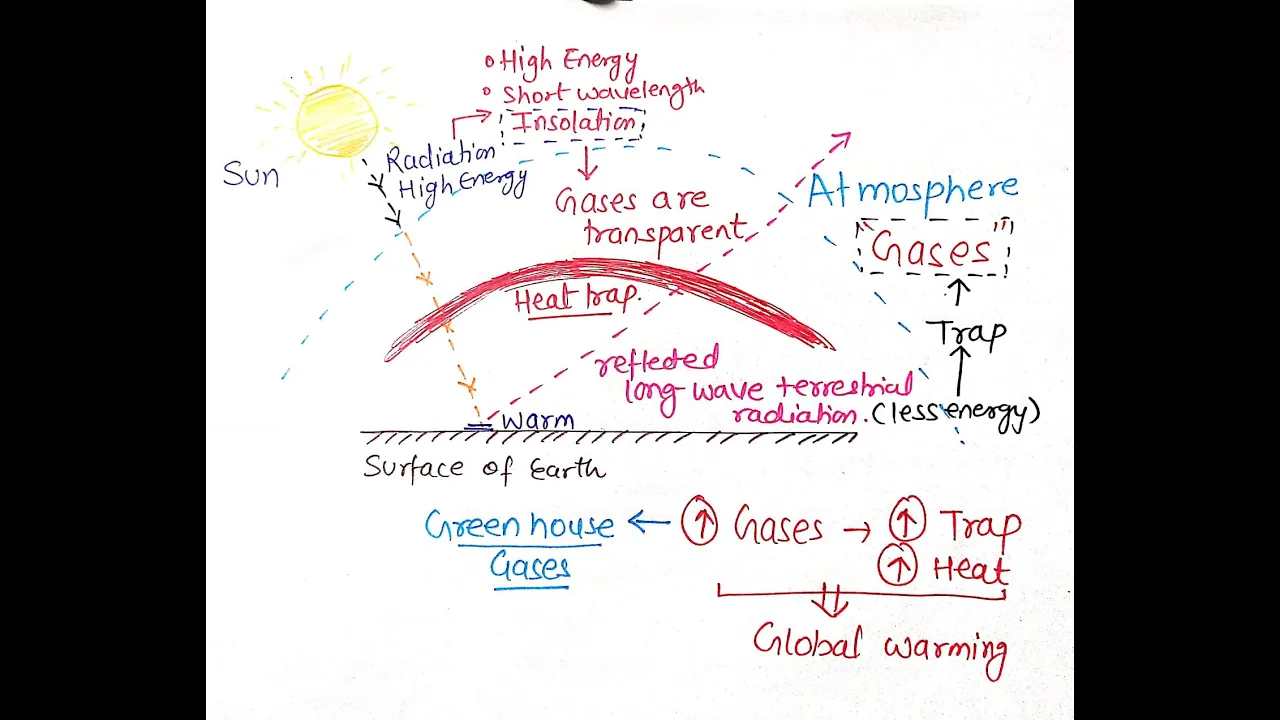 • High Energy
• Short wavelength
Insolation
Radiation
High Energy
Sun
Gases are
transparent
Atmosphere
"Gases"
Heat trap.
Trap
reflected
long-wave terrestrial
radiation. (less energy)
warm
Surface of Earth
Green house ← ↑ Gases → ↑ Trap
Gases
↑ Heat
Global warming